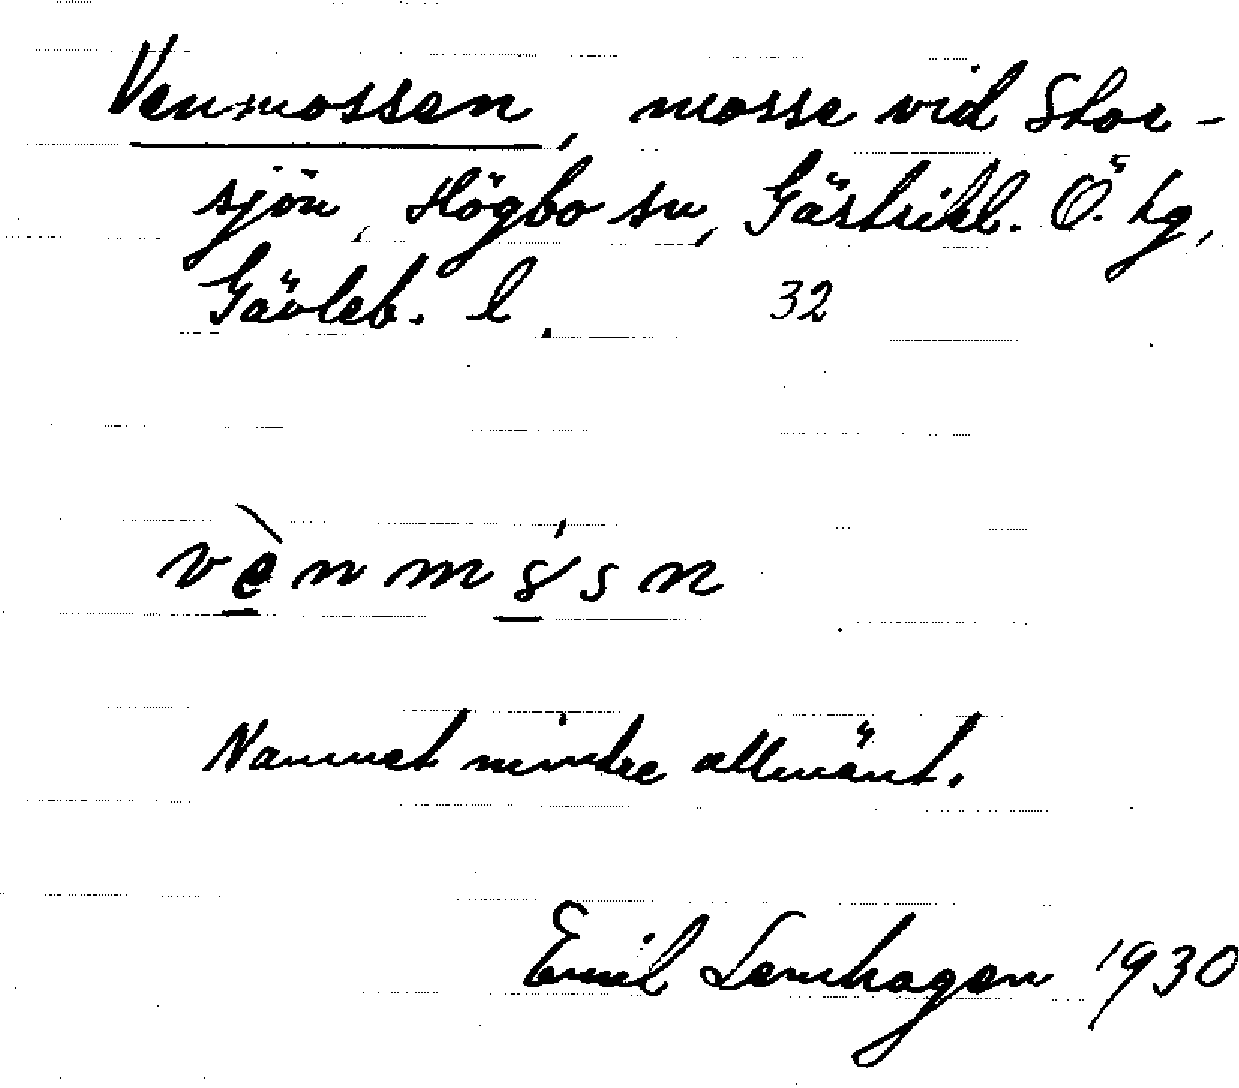 Venmossen, mosse vid Stor-
sjön, Högbo sn, Gästrikl. Ö. tg,
Gävleb. l. 32
vènmósn
Namnet mindre allmänt.
Emil Lenhagen 1930